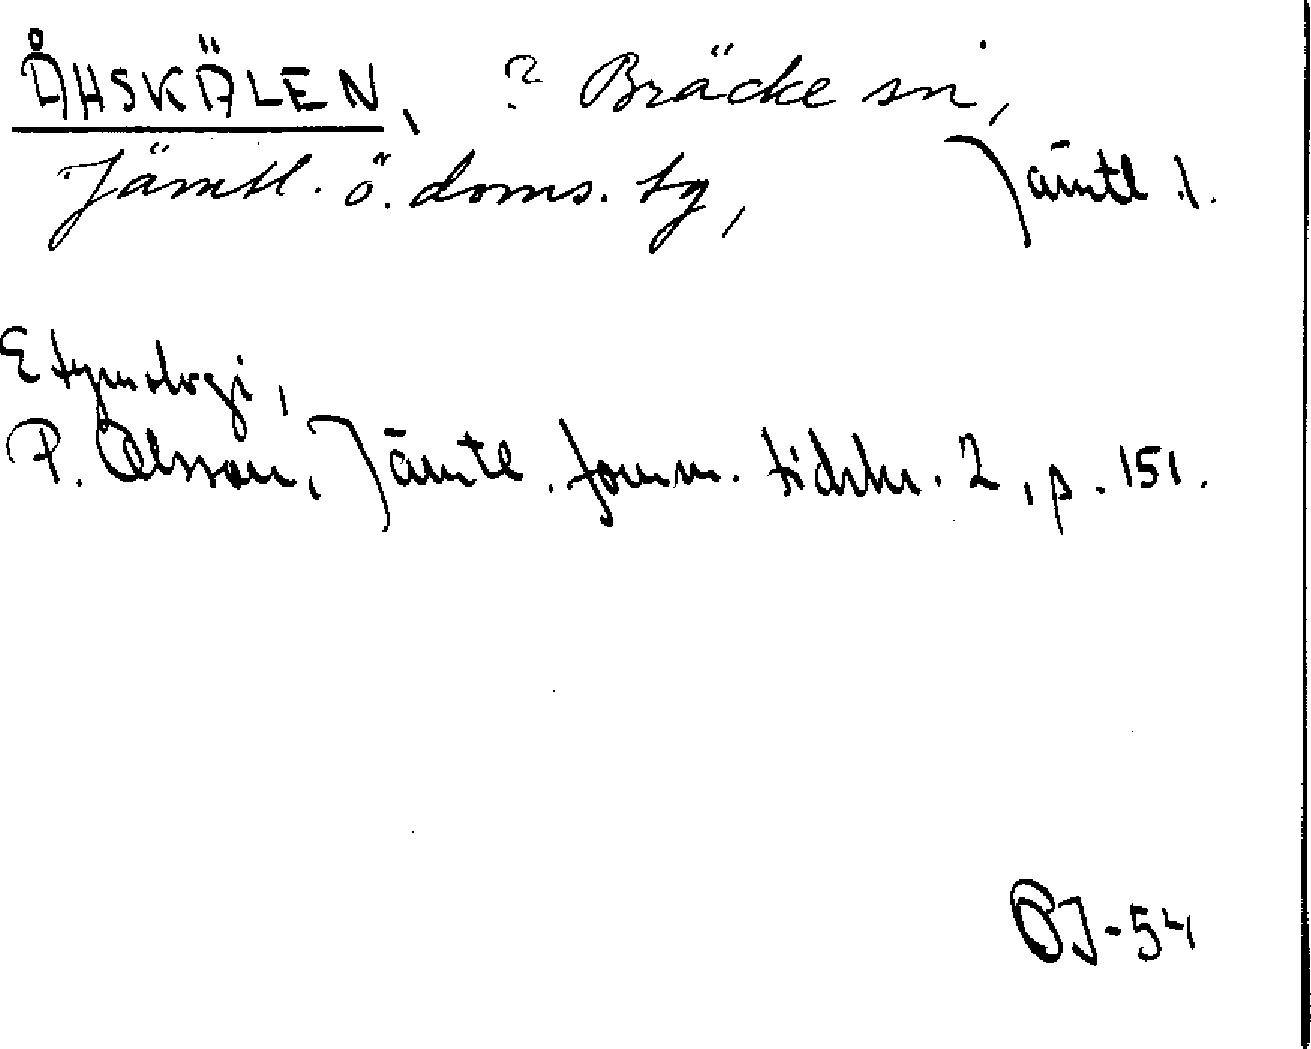 ÅHSKÄLEN, ? Bräcke sn,
Jämtl. ö. doms. tg, Jämtl.
Etymologi,
P. Olsson, Jämtl. fornm. tidskr. 2, p. 151.
OJ-54